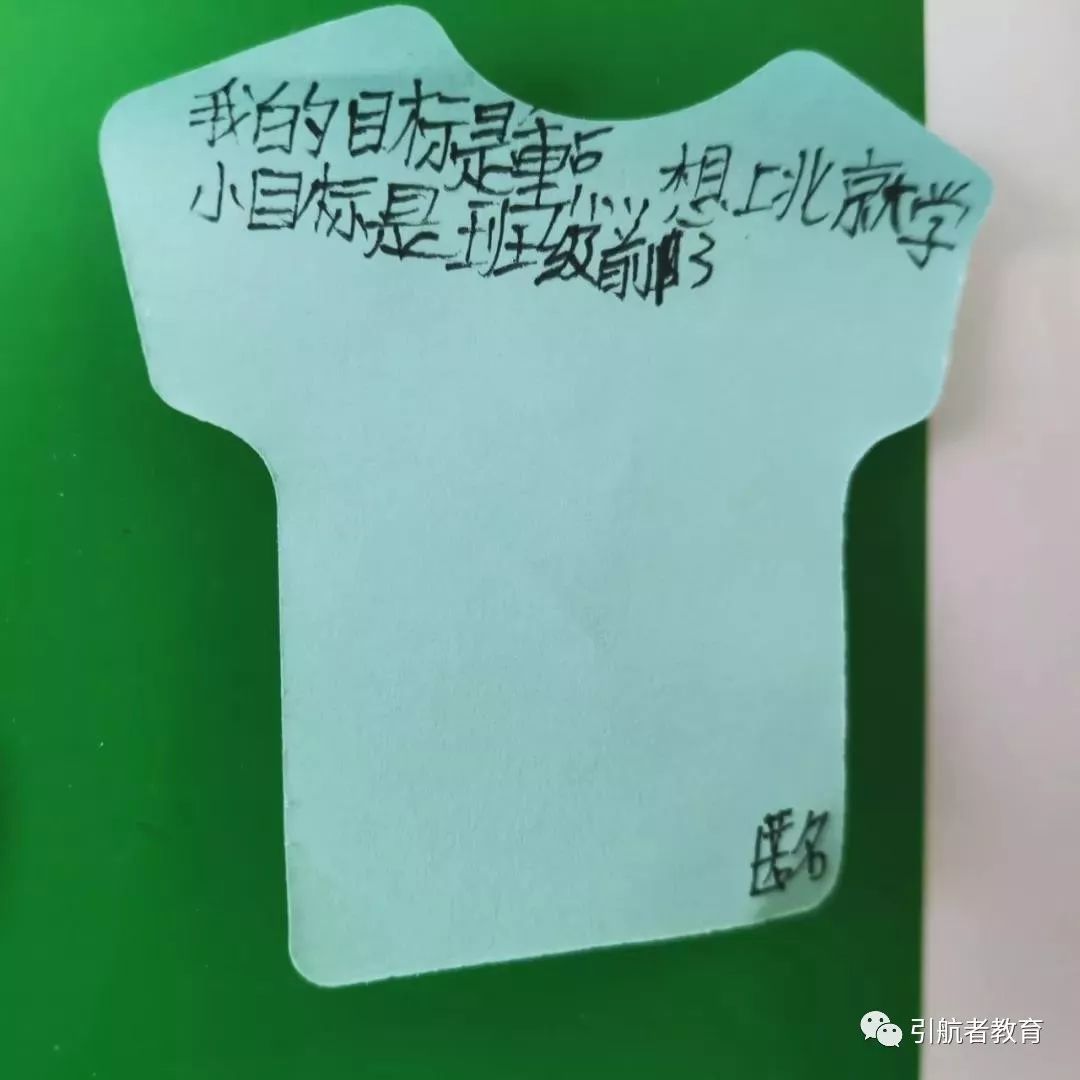 我的目标是重点 想上北京大学
小目标是班级前3
匿名
引航者教育